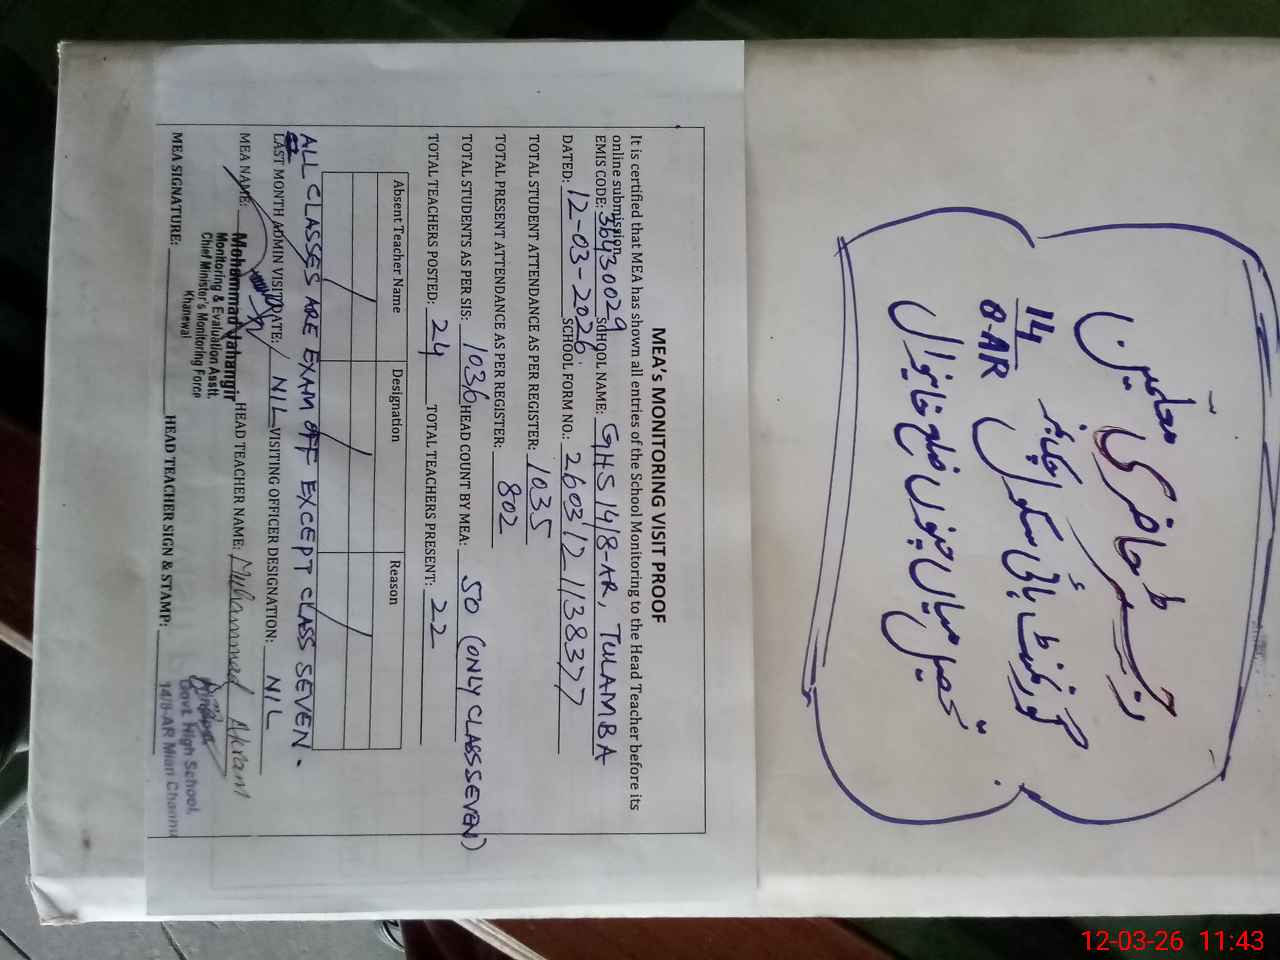 رجسٹر حاضری معلمین
گورنمنٹ ہائی سکول چک نمبر 14/8-AR
تحصیل میاں چنوں ضلع خانیوال
MEA's MONITORING VISIT PROOF
It is certified that MEA has shown all entries of the School Monitoring to the Head Teacher before its
online submission.
EMIS CODE: 36430029 SCHOOL NAME: GHS 14/8-AR, TULAMBA
DATED: 12-03-2026. SCHOOL FORM NO.: 260312113837
TOTAL STUDENT ATTENDANCE AS PER REGISTER: 1035
TOTAL PRESENT ATTENDANCE AS PER REGISTER: 802
TOTAL STUDENTS AS PER SIS: 1036 HEAD COUNT BY MEA: 50 (ONLY CLASS SEVEN)
TOTAL TEACHERS POSTED: 24 TOTAL TEACHERS PRESENT: 22
Absent Teacher Name Designation Reason
ALL CLASSES ARE EXAM OFF EXCEPT CLASS SEVEN.
LAST MONTH ADMIN VISIT DATE: NIL VISITING OFFICER DESIGNATION: NIL
MEA NAME: Mohammad Jahangir HEAD TEACHER NAME: Muhammad Akram
Monitoring & Evaluation Asstt.
Chief Minister's Monitoring Force
Khanewal
MEA SIGNATURE: HEAD TEACHER SIGN & STAMP:
Govt. High School,
14/8-AR Mian Channu
12-03-26 11:43